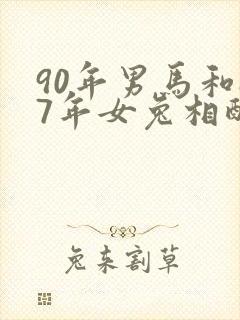 90年男馬和
7年女兔相配
兔来割草